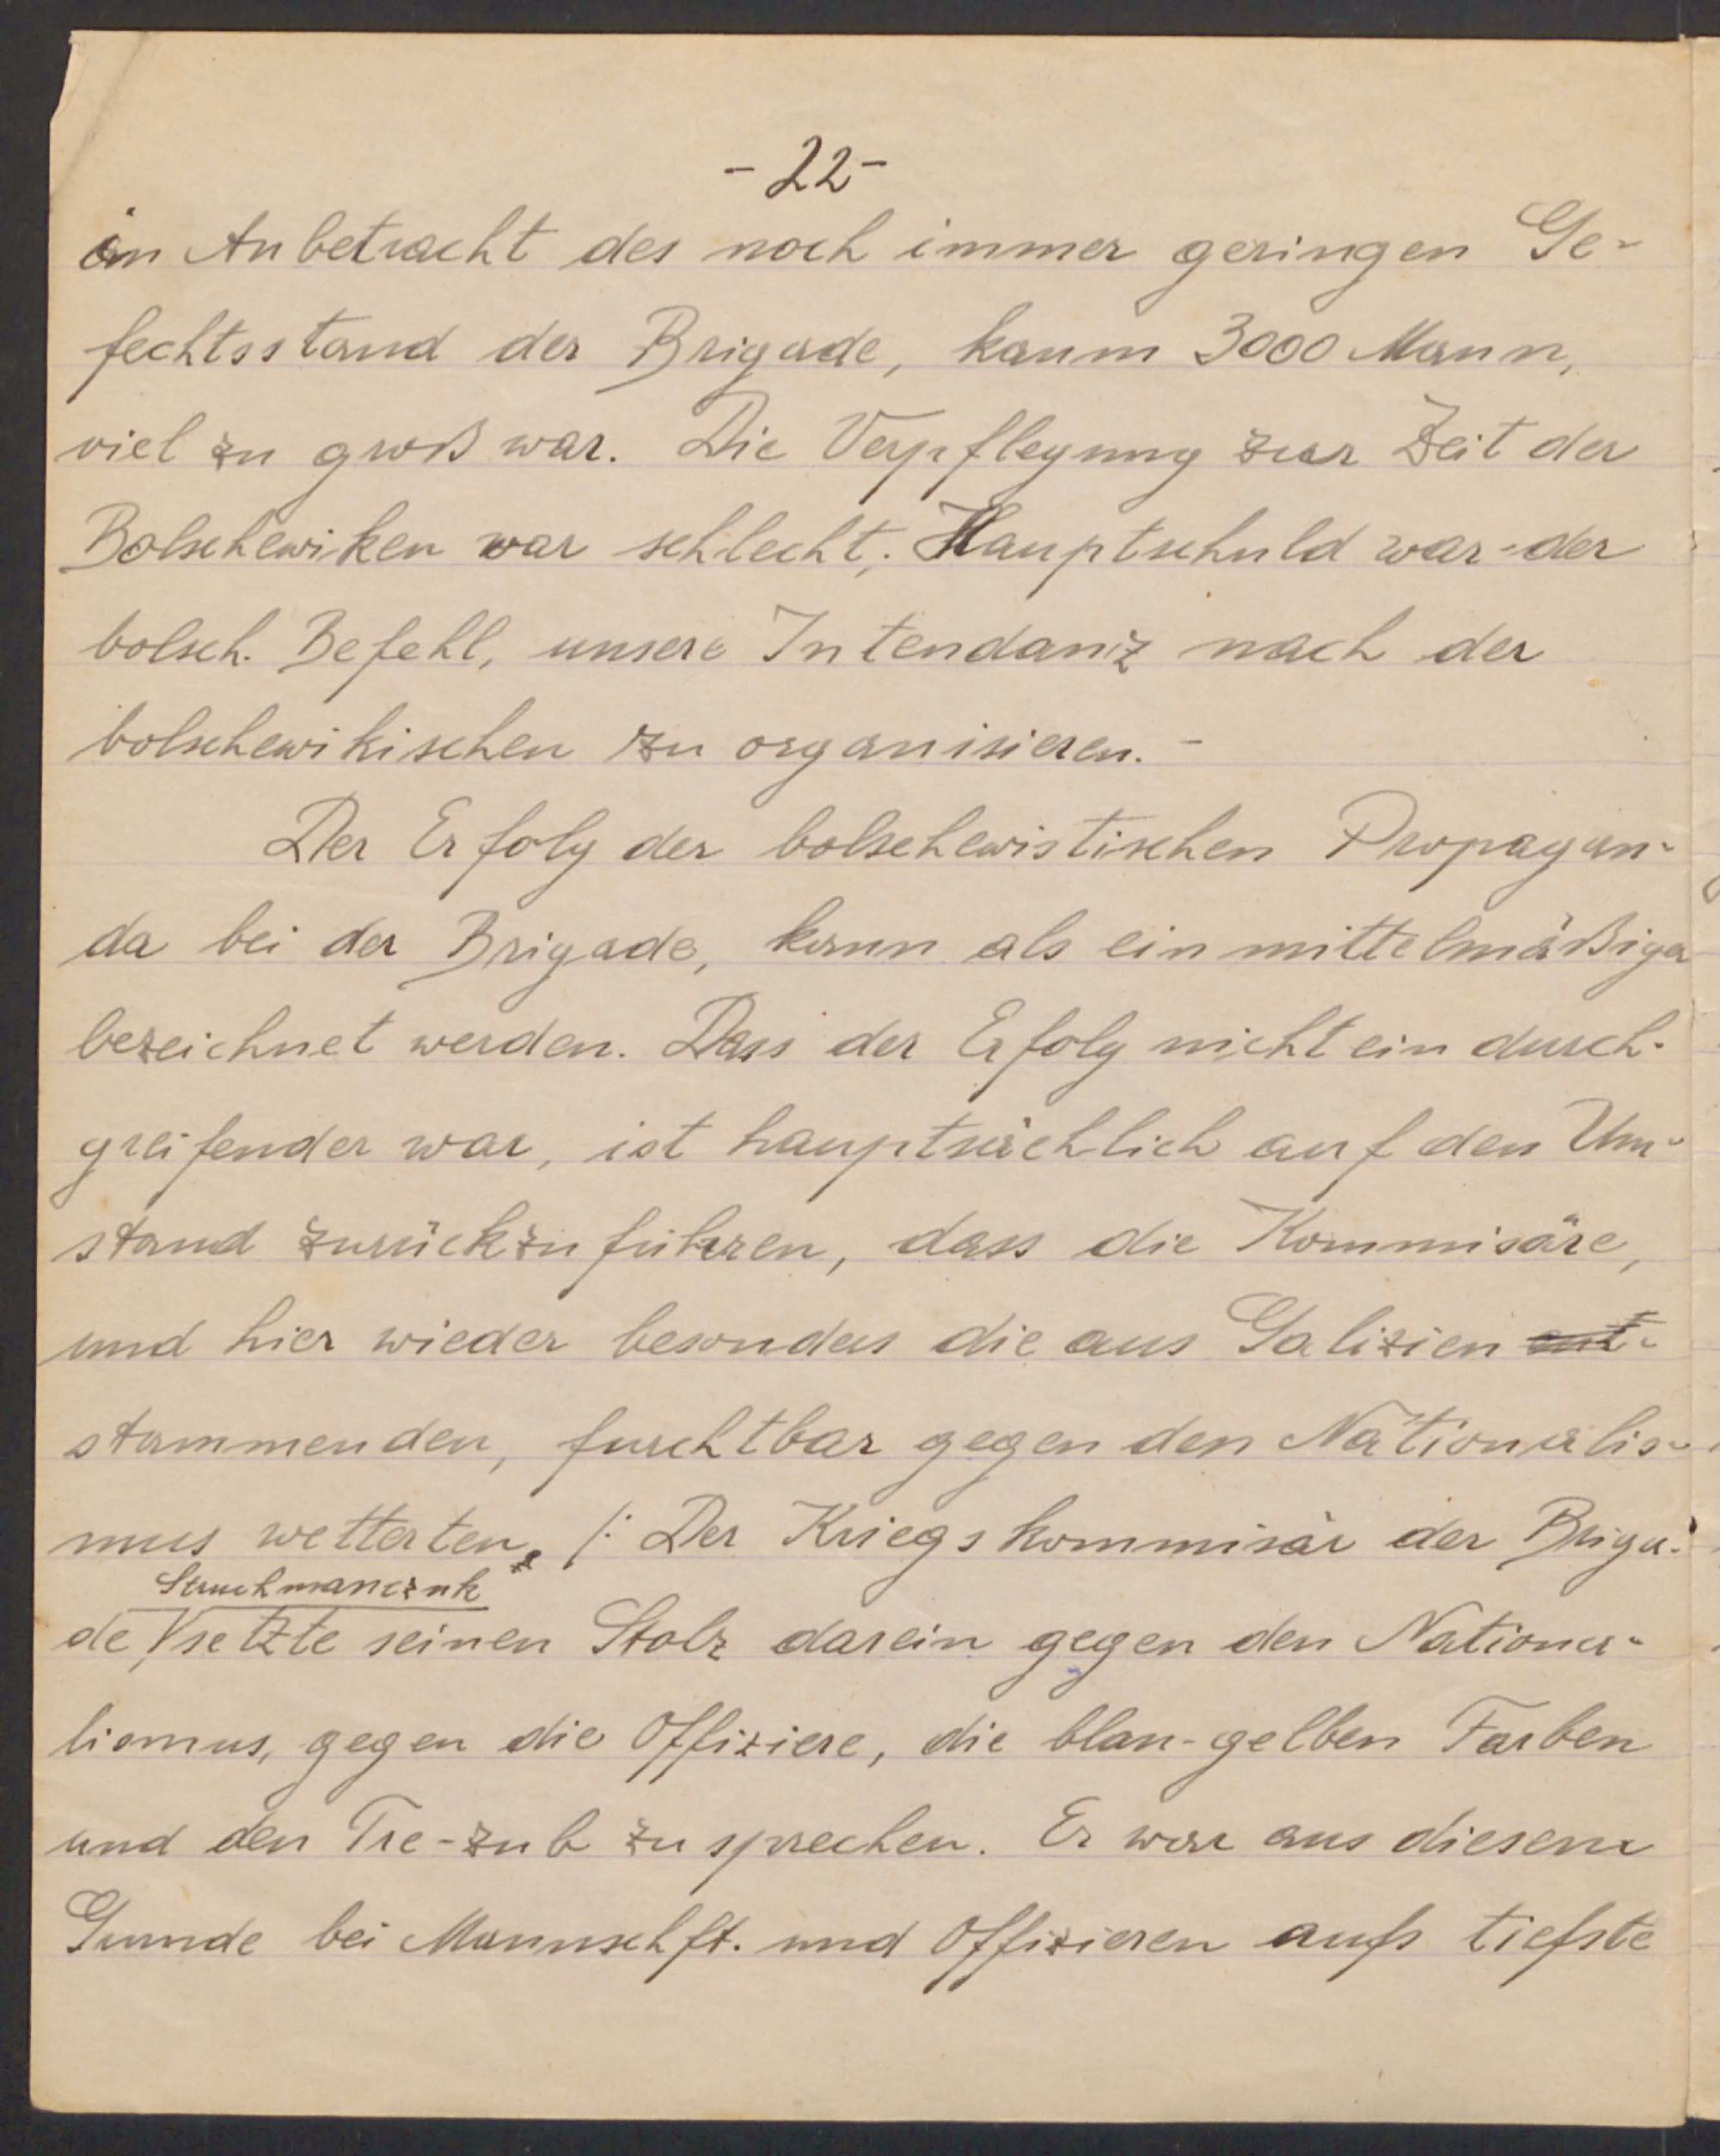 - 22 -
in Anbetracht des noch immer geringen Ge-
fechtsstand der Brigade, kaum 3000 Mann,
viel zu groß war. Die Verpflegung zur Zeit der
Bolschewiken war schlecht; Hauptschuld war der
bolsch. Befehl, unsere Intendanz nach der
bolschewikischen zu organisieren. -
Der Erfolg der bolschewistischen Propagan-
da bei der Brigade, kann als ein mittelmäßiger
bezeichnet werden. Dass der Erfolg nicht ein durch-
greifender war, ist hauptsächlich auf den Um-
stand zurückzuführen, dass die Kommisäre,
und hier wieder besonders die aus Galizien ent-
stammenden, furchtbar gegen den Nationalis-
mus wetterten. /: Der Kriegskommisär der Briga-
Struchmanczuk
de, setzte seinen Stolz darein gegen den Nationa-
lismus, gegen die Offiziere, die blau-gelben Farben
und den Tre-zub zu sprechen. Er war aus diesem
Grunde bei Mannschft. und Offizieren aufs tiefste